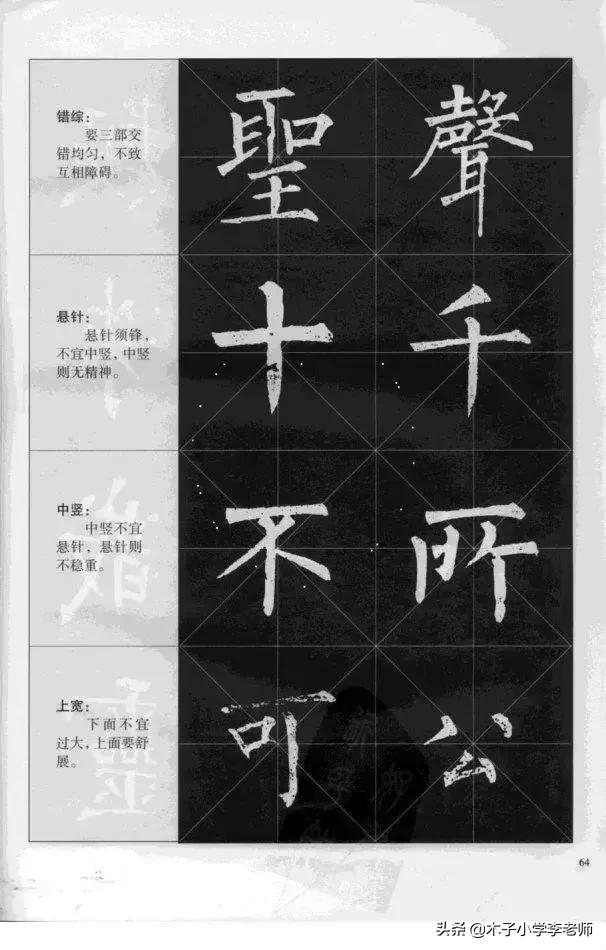 错综：
要三部交
错均匀，不致
互相障碍。
聖 聲
悬针：
悬针须锋，
不宜中竖，中竖
则无精神。
十 千
中竖：
中竖不宜
悬针，悬针则
不稳重。
不 所
上宽：
下面不宜
过大，上面要舒
展。
可 公
64
头条 @木子小学李老师